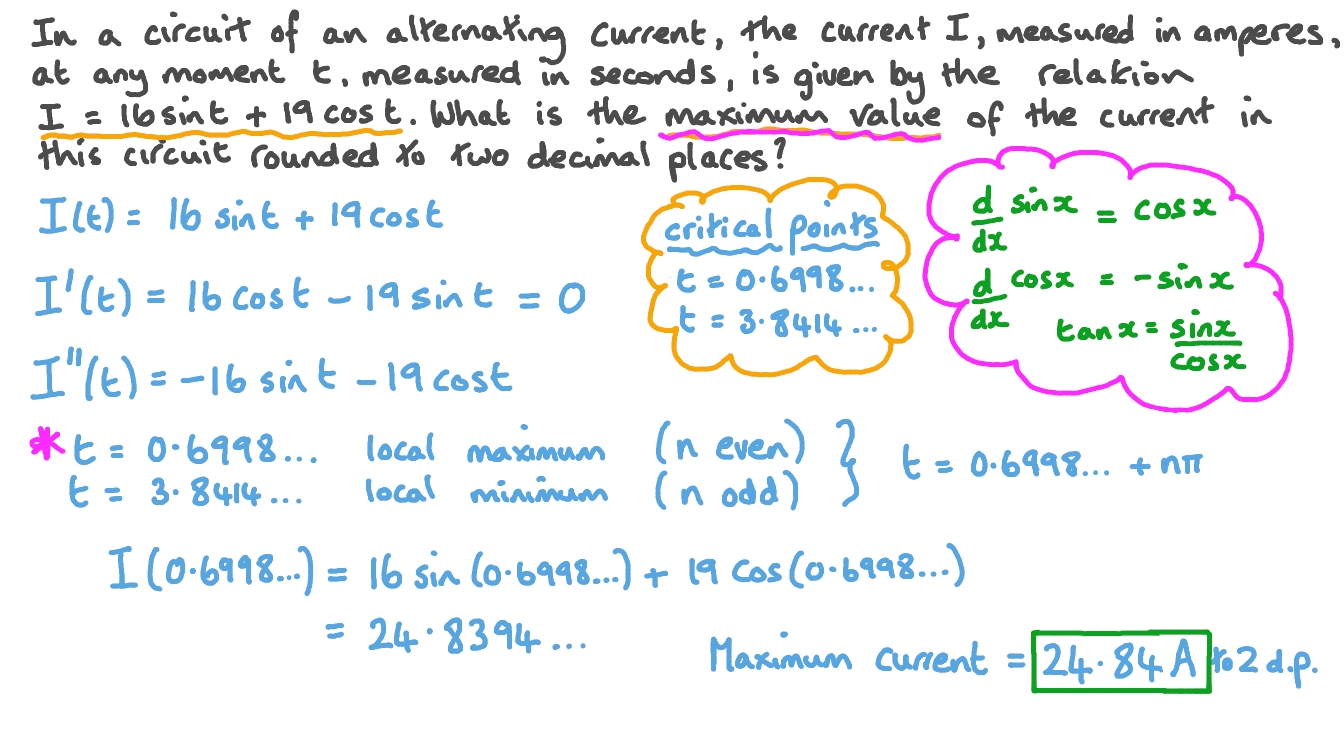 In a circuit of an alternating current, the current I, measured in amperes,
at any moment t, measured in seconds, is given by the relation
I = 16 sin t + 19 cos t. What is the maximum value of the current in
this circuit rounded to two decimal places?
I(t) = 16 sin t + 19 cos t
I'(t) = 16 cos t - 19 sin t = 0
I''(t) = -16 sin t - 19 cos t
critical points
t = 0.6998...
t = 3.8414...
d/dx sin x = cos x
d/dx cos x = -sin x
tan x = sin x/cos x
* t = 0.6998... local maximum (n even)
t = 3.8414... local minimum (n odd)
} t = 0.6998... + nπ
I(0.6998...) = 16 sin(0.6998...) + 19 cos(0.6998...)
= 24.8394...
Maximum current = 24.84 A to 2 d.p.